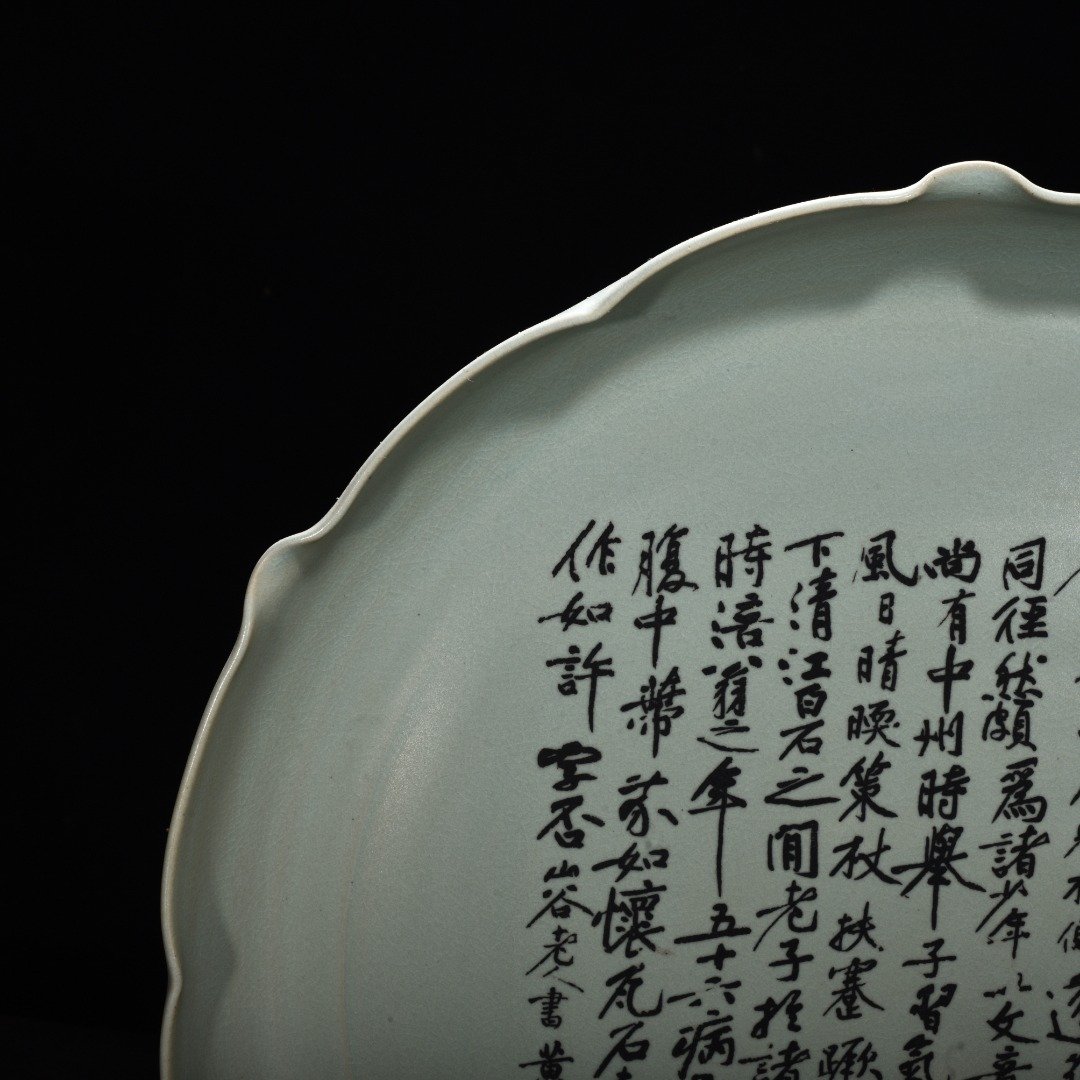 同徑然頗爲諸少年以文章
尚有中州時舉子習氣
風日晴暖策杖扶蹇蹶
下清江白石之間老子於諸
時涪翁之年五十六病
腹中蔕芥如懷瓦石
作如許字否山谷老人書黄